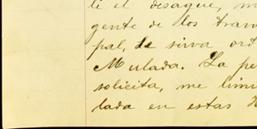 te el desague, m
gente de los tran
pal, de sirva ord
Mulada. La pe
solicita, me limi
lada en estas